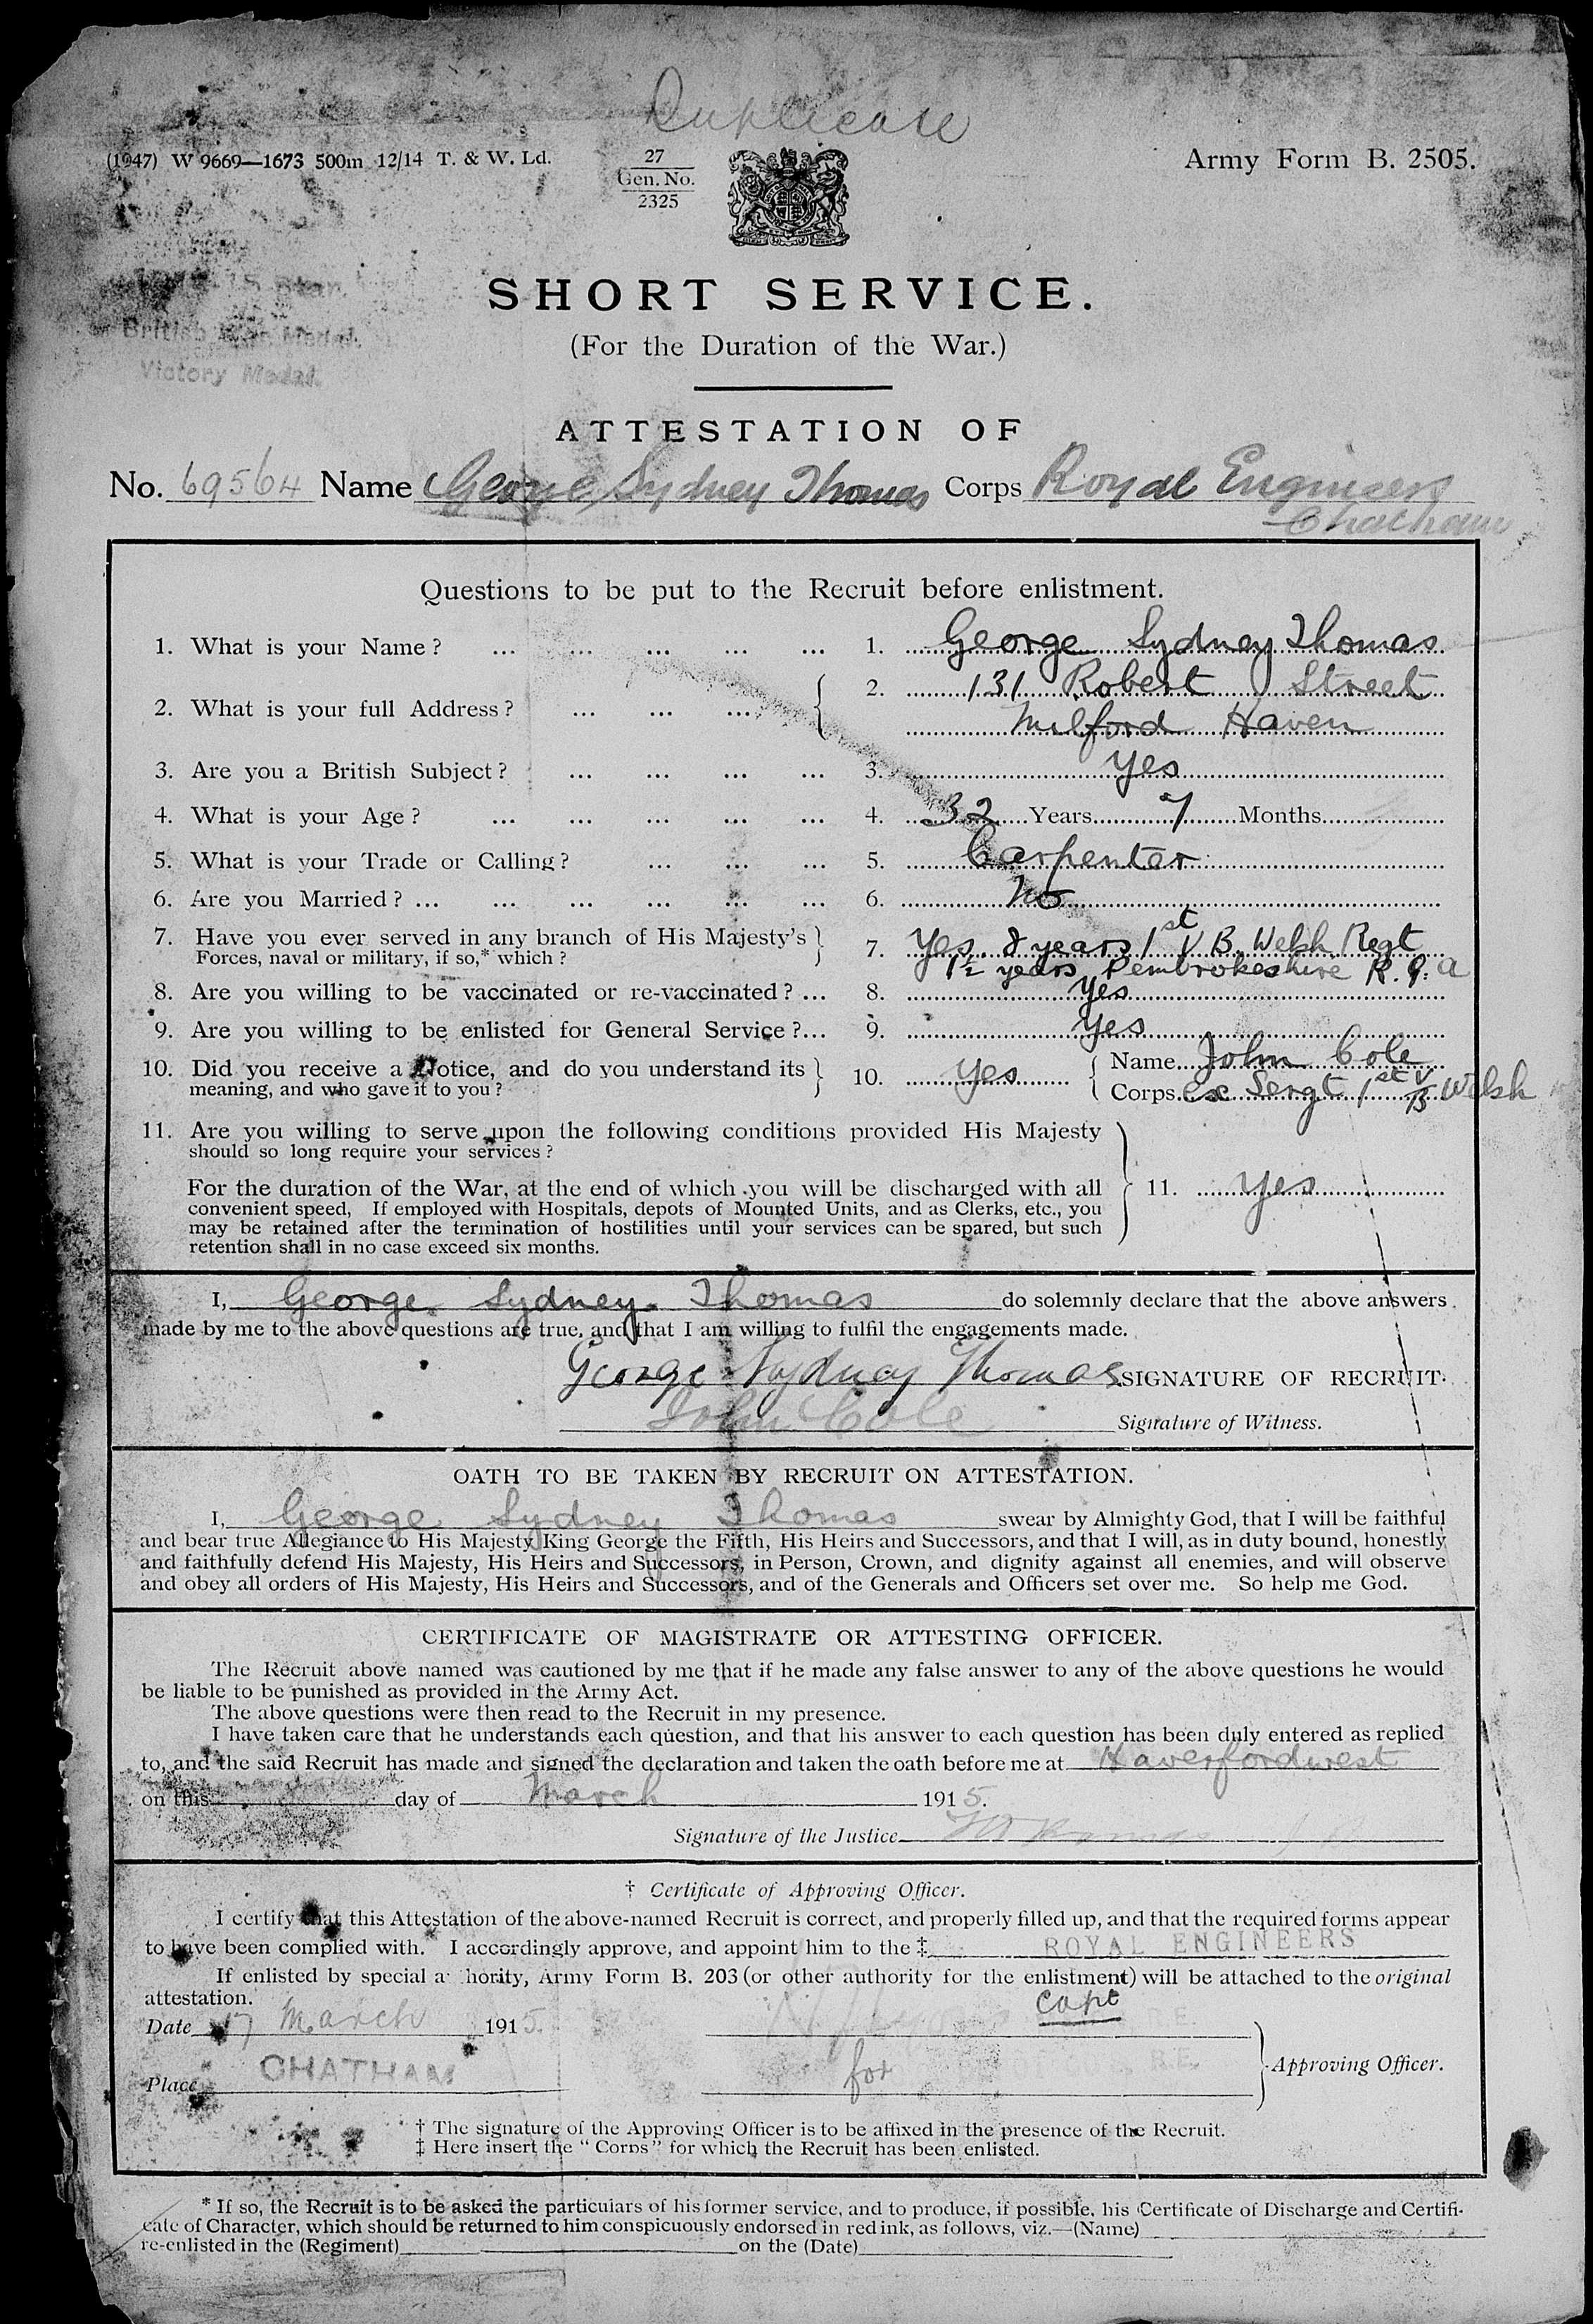 Duplicate
(1947) W 9669—1673 500m 12/14 T. & W. Ld.
27
Gen. No.
2325
Army Form B. 2505.
15 Star.
British War Medal.
Victory Medal.
SHORT SERVICE.
(For the Duration of the War.)
ATTESTATION OF
No. 69564 Name George Sydney Thomas Corps Royal Engineers
Chatham
Questions to be put to the Recruit before enlistment.
1. What is your Name? ... ... ... ... ... 1. George Sydney Thomas
2. What is your full Address? ... ... ... 2. 131 Robert Street
Milford Haven
3. Are you a British Subject? ... ... ... ... 3. Yes
4. What is your Age? ... ... ... ... ... 4. 32 Years 7 Months
5. What is your Trade or Calling? ... ... ... 5. Carpenter
6. Are you Married? ... ... ... ... ... ... 6. No
7. Have you ever served in any branch of His Majesty's 7. Yes. 8 years 1st V.B. Welsh Regt
Forces, naval or military, if so,* which? 1½ years Pembrokeshire R.G.A
8. Are you willing to be vaccinated or re-vaccinated? ... 8. Yes
9. Are you willing to be enlisted for General Service?... 9. Yes
10. Did you receive a Notice, and do you understand its 10. Yes Name John Cole
meaning, and who gave it to you? Corps ex Sergt 1st V/B Welsh
11. Are you willing to serve upon the following conditions provided His Majesty
should so long require your services?
For the duration of the War, at the end of which you will be discharged with all 11. Yes
convenient speed, If employed with Hospitals, depots of Mounted Units, and as Clerks, etc., you
may be retained after the termination of hostilities until your services can be spared, but such
retention shall in no case exceed six months.
I, George Sydney Thomas do solemnly declare that the above answers
made by me to the above questions are true, and that I am willing to fulfil the engagements made.
George Sydney Thomas SIGNATURE OF RECRUIT.
John Cole Signature of Witness.
OATH TO BE TAKEN BY RECRUIT ON ATTESTATION.
I, George Sydney Thomas swear by Almighty God, that I will be faithful
and bear true Allegiance to His Majesty King George the Fifth, His Heirs and Successors, and that I will, as in duty bound, honestly
and faithfully defend His Majesty, His Heirs and Successors, in Person, Crown, and dignity against all enemies, and will observe
and obey all orders of His Majesty, His Heirs and Successors, and of the Generals and Officers set over me. So help me God.
CERTIFICATE OF MAGISTRATE OR ATTESTING OFFICER.
The Recruit above named was cautioned by me that if he made any false answer to any of the above questions he would
be liable to be punished as provided in the Army Act.
The above questions were then read to the Recruit in my presence.
I have taken care that he understands each question, and that his answer to each question has been duly entered as replied
to, and the said Recruit has made and signed the declaration and taken the oath before me at Haverfordwest
on this day of March 1915.
Signature of the Justice
† Certificate of Approving Officer.
I certify that this Attestation of the above-named Recruit is correct, and properly filled up, and that the required forms appear
to have been complied with. I accordingly approve, and appoint him to the ‡ ROYAL ENGINEERS
If enlisted by special authority, Army Form B. 203 (or other authority for the enlistment) will be attached to the original
attestation.
Capt
Date 17 March 1915. R.E.
for R.E. Approving Officer.
Place CHATHAM
† The signature of the Approving Officer is to be affixed in the presence of the Recruit.
‡ Here insert the "Corps" for which the Recruit has been enlisted.
* If so, the Recruit is to be asked the particulars of his former service, and to produce, if possible, his Certificate of Discharge and Certifi-
cate of Character, which should be returned to him conspicuously endorsed in red ink, as follows, viz.—(Name)
re-enlisted in the (Regiment) on the (Date)